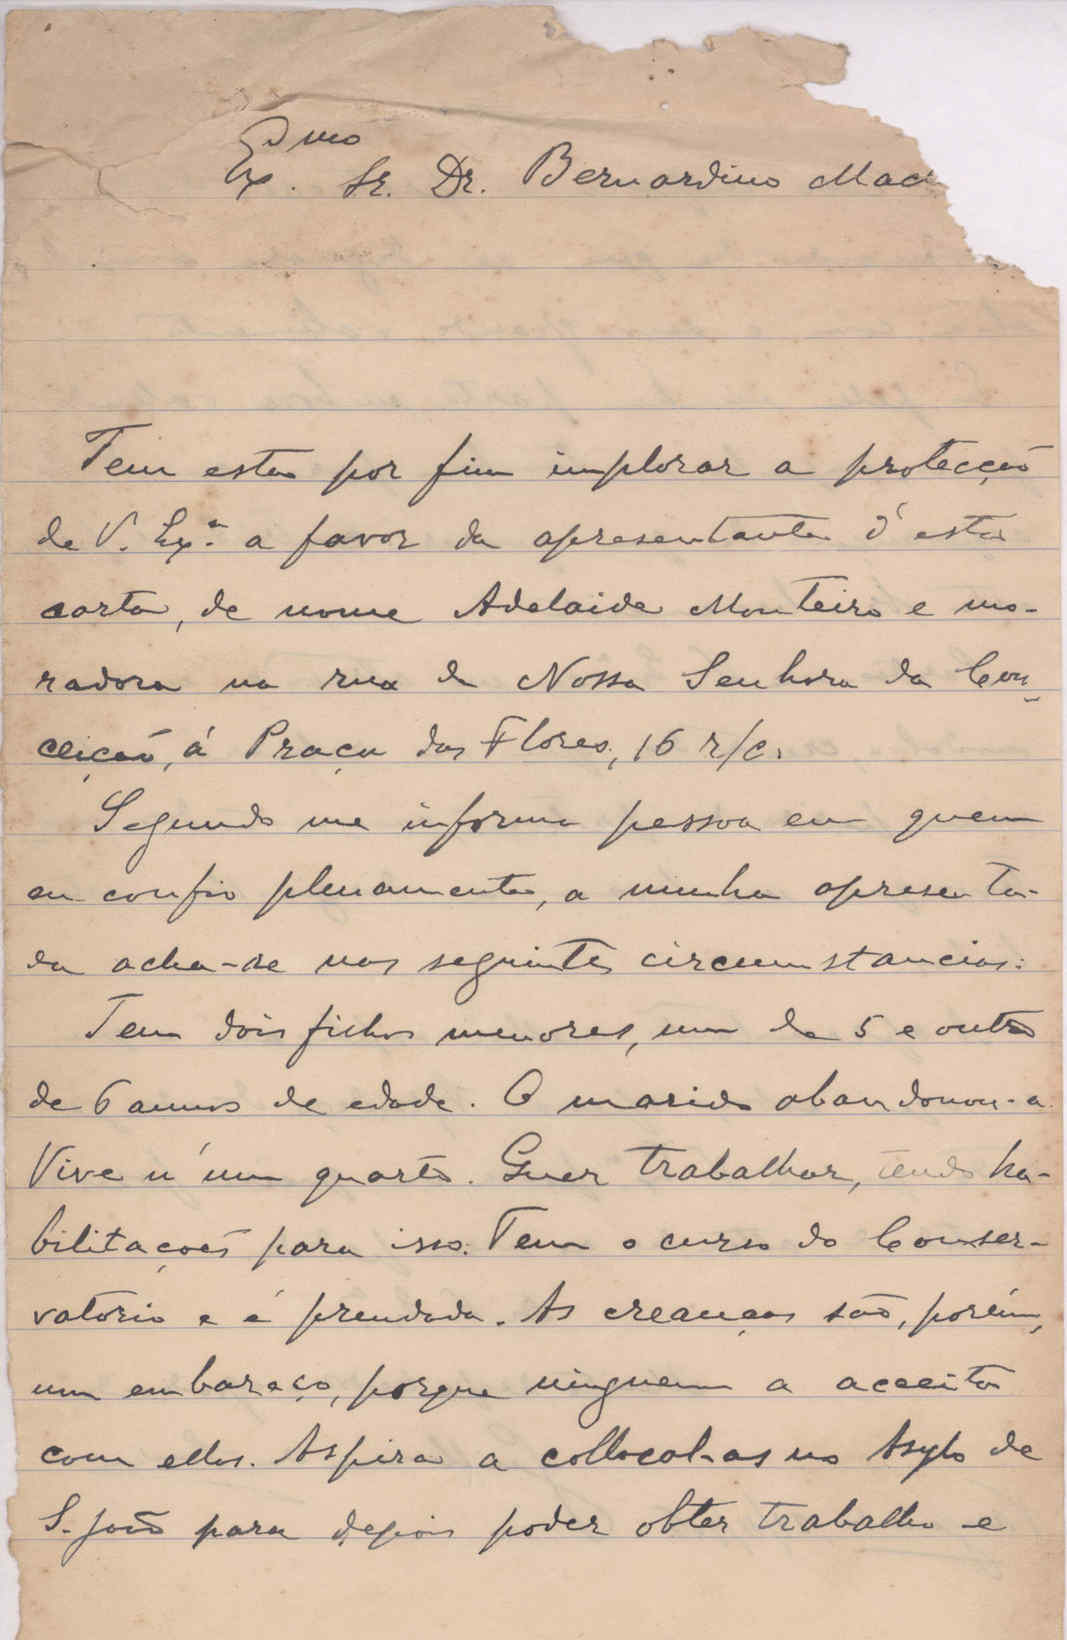 Exmo Sr. Dr. Bernardino Mac
Tem esta por fim implorar a protecção
de V. Exª. a favor da apresentante d'esta
carta, de nome Adelaide Monteiro e mo-
radora na rua da Nossa Senhora da Con-
ceição, á Praça das Flores, 16 r/c.
Segundo me informa pessoa em quem
eu confio plenamente, a minha apresenta-
da acha-se nas seguintes circumstancias:
Tem dois filhos menores, um de 5 e outro
de 6 annos de edade. O marido abandonou-a.
Vive n'um quarto. Quer trabalhar, tendo ha-
bilitações para isso. Tem o curso do Conser-
vatorio e é prendada. As creanças são, porém,
um embaraço, porque ninguem a acceita
com ellas. Aspira a collocal-as no Asylo de
S. João para depois poder obter trabalho e